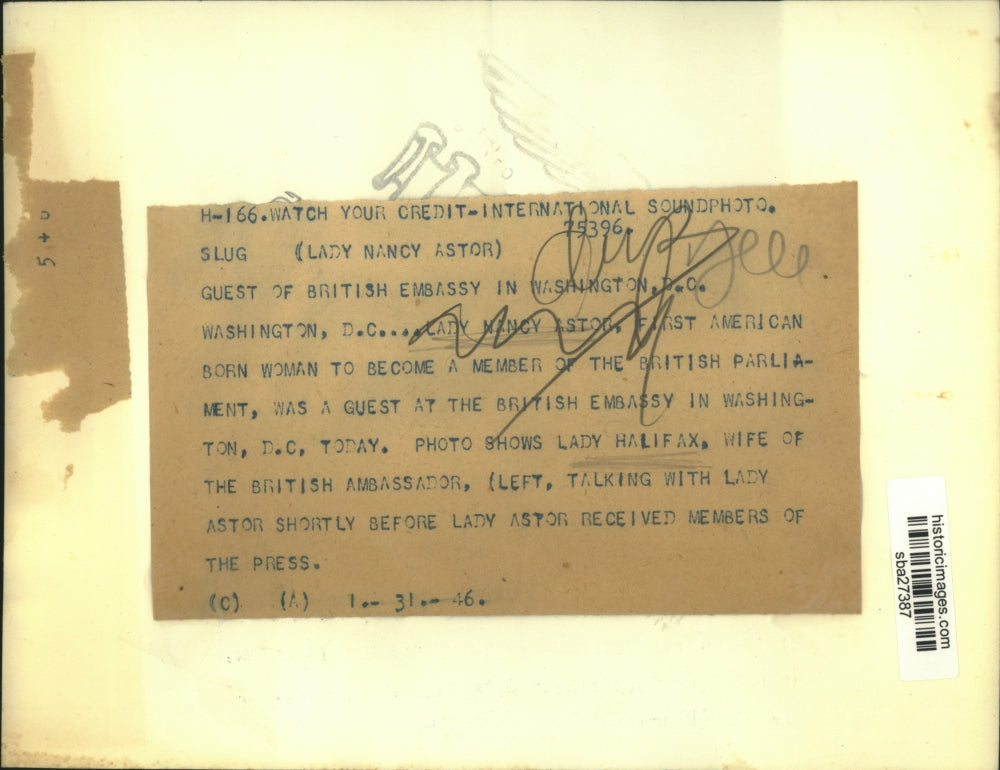 H-166.WATCH YOUR CREDIT-INTERNATIONAL SOUNDPHOTO.
75396.
SLUG (LADY NANCY ASTOR)
GUEST OF BRITISH EMBASSY IN WASHINGTON, D.C.
WASHINGTON, D.C....LADY NANCY ASTOR, FIRST AMERICAN
BORN WOMAN TO BECOME A MEMBER OF THE BRITISH PARLIA-
MENT, WAS A GUEST AT THE BRITISH EMBASSY IN WASHING-
TON, D.C, TODAY. PHOTO SHOWS LADY HALIFAX, WIFE OF
THE BRITISH AMBASSADOR, (LEFT, TALKING WITH LADY
ASTOR SHORTLY BEFORE LADY ASTOR RECEIVED MEMBERS OF
THE PRESS.
(C) (A) 1.- 31.- 46.
historicimages.com
sba27387